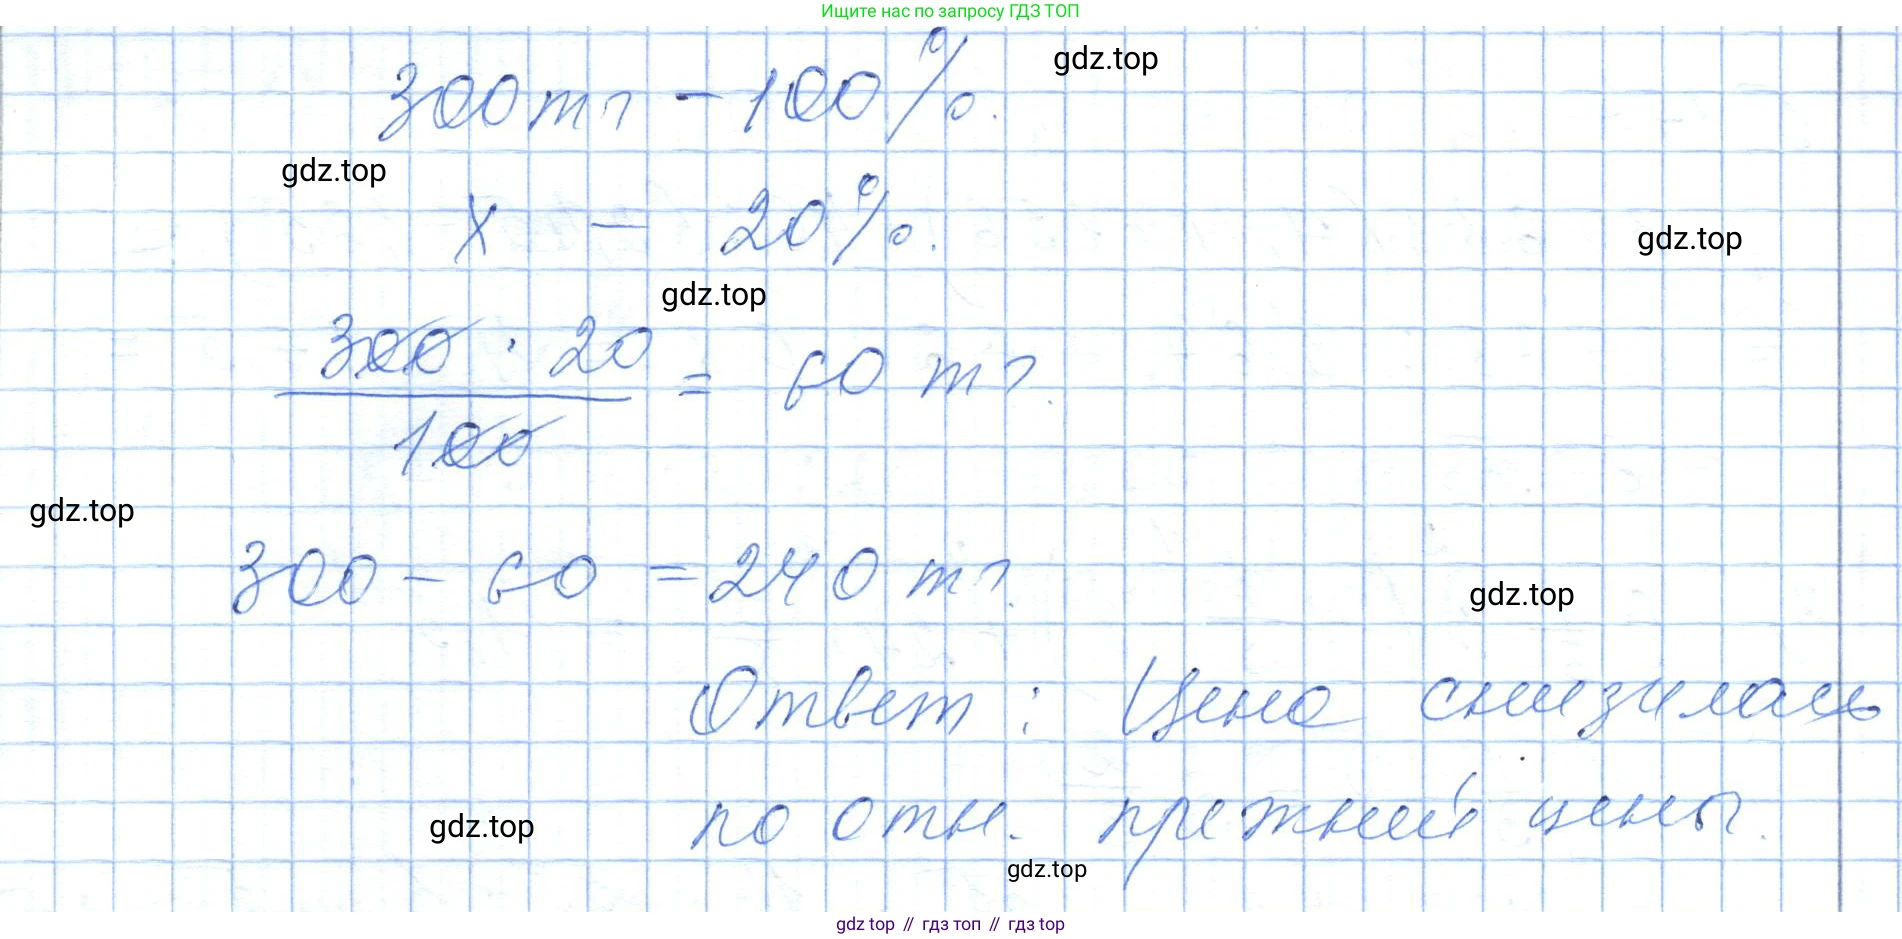 Ищите нас по запросу ГДЗ ТОП
300 тг - 100%.
gdz.top
gdz.top
x - 20%.
gdz.top
gdz.top
300 · 20
100
= 60 тг.
gdz.top
300 - 60 = 240 тг.
gdz.top
Ответ: Цена снизилась
по отн. прежней цены.
gdz.top
gdz.top
gdz top // гдз топ // гдз top